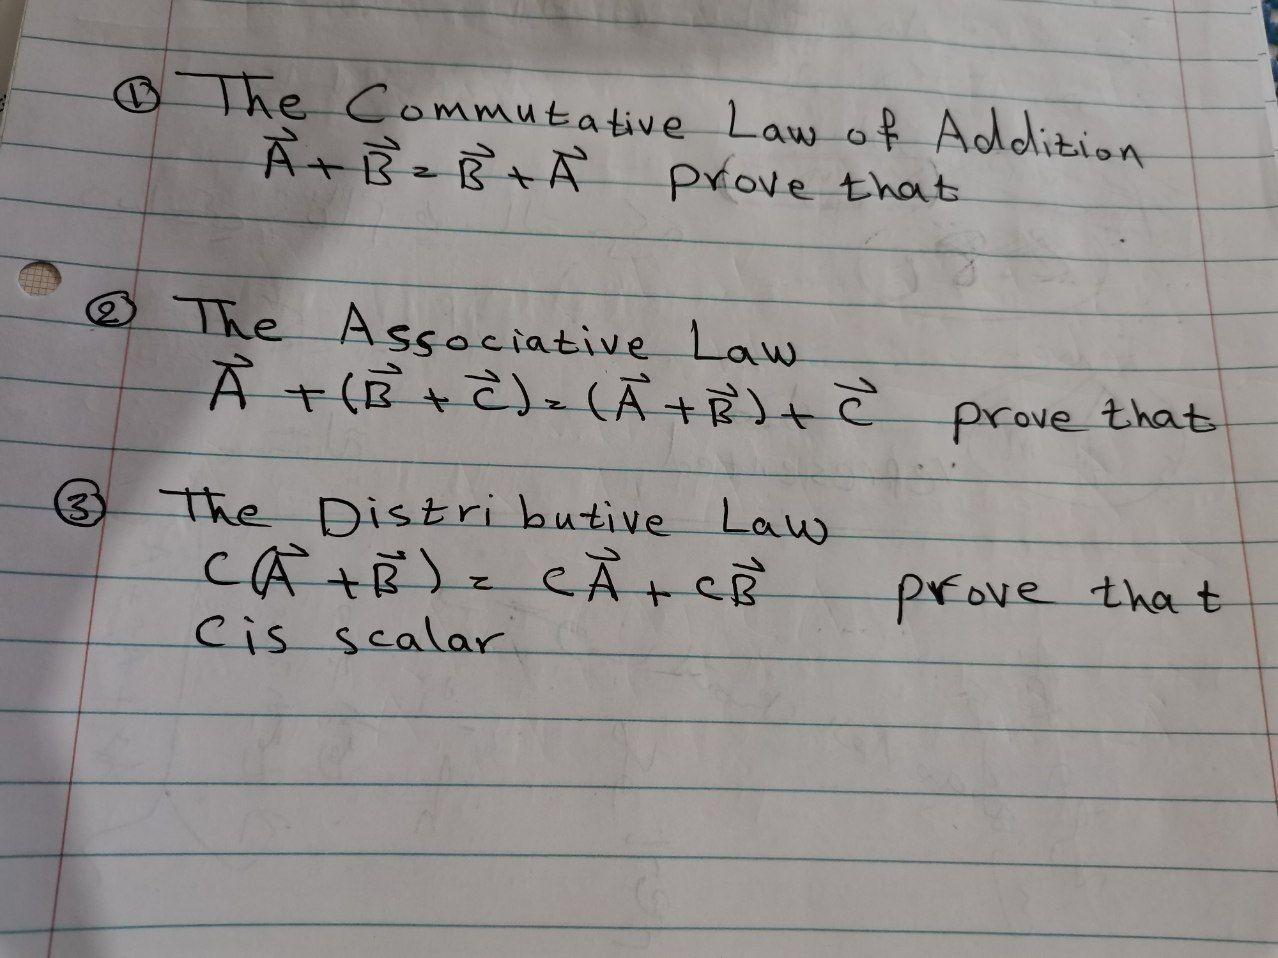 ① The Commutative Law of Addition
A⃗ + B⃗ = B⃗ + A⃗ prove that
② The Associative Law
A⃗ + (B⃗ + C⃗) = (A⃗ + B⃗) + C⃗ prove that
③ The Distributive Law
C(A⃗ + B⃗) = cA⃗ + cB⃗ prove that
C is scalar